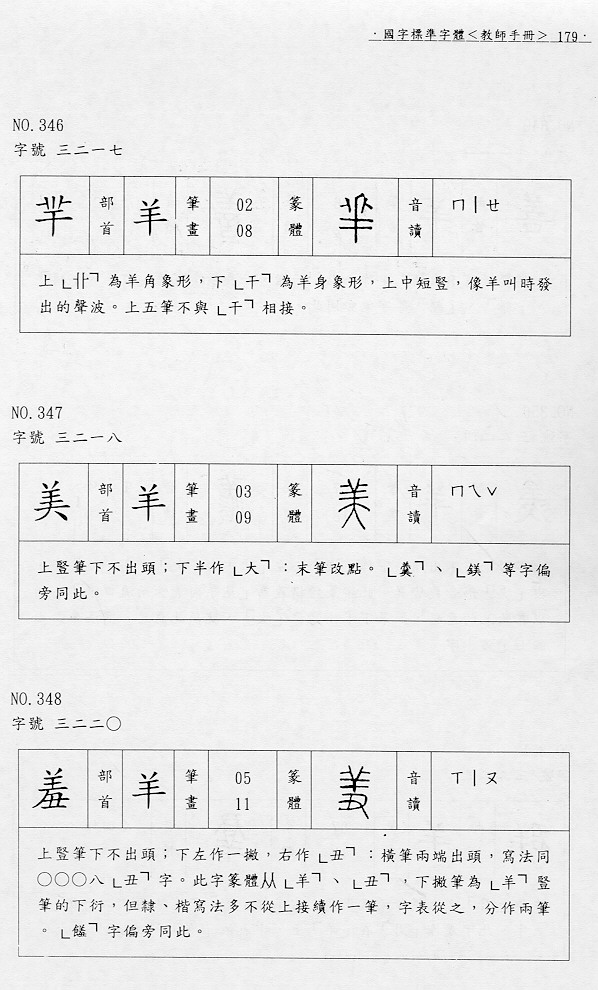 ·國字標準字體＜教師手冊＞ 179·
NO.346
字號 三二一七
羋 部首 羊 筆畫 02 08 篆體 羋 音讀 ㄇㄧㄝ
上「卝」為羊角象形，下「干」為羊身象形，上中短豎，像羊叫時發
出的聲波。上五筆不與「干」相接。
NO.347
字號 三二一八
美 部首 羊 筆畫 03 09 篆體 美 音讀 ㄇㄟˇ
上豎筆下不出頭；下半作「大」：末筆改點。「羹」、「鎂」等字偏
旁同此。
NO.348
字號 三二二〇
羞 部首 羊 筆畫 05 11 篆體 羞 音讀 ㄒㄧㄡ
上豎筆下不出頭；下左作一撇，右作「丑」：橫筆兩端出頭，寫法同
〇〇〇八「丑」字。此字篆體从「羊」、「丑」，下撇筆為「羊」豎
筆的下衍，但隸、楷寫法多不從上接續作一筆，字表從之，分作兩筆
。「饈」字偏旁同此。